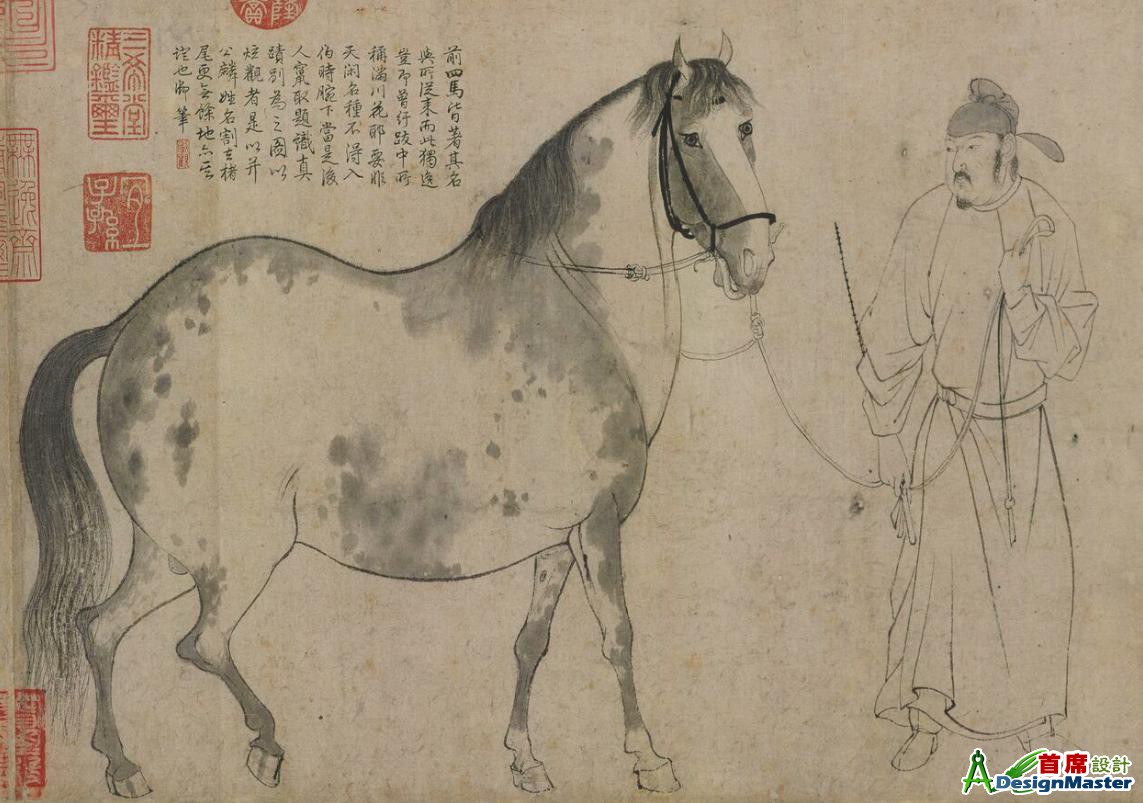 前四馬皆著其名
與所從來而此獨逸
豈即曾紆跋中所
稱滿川花耶要非
天閑名種不得入
伯時腕下當是後
人竄取題識真
蹟別為之圖以
炫觀者是以并
公麟姓名割去楮
尾更無餘地亦一
證也御筆
三希堂
精鑑璽
宜
子孫
無逸齋
首席設計
DesignMaster